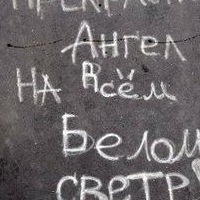 Ангел
НА Всём
Белом
СВЕТЕ